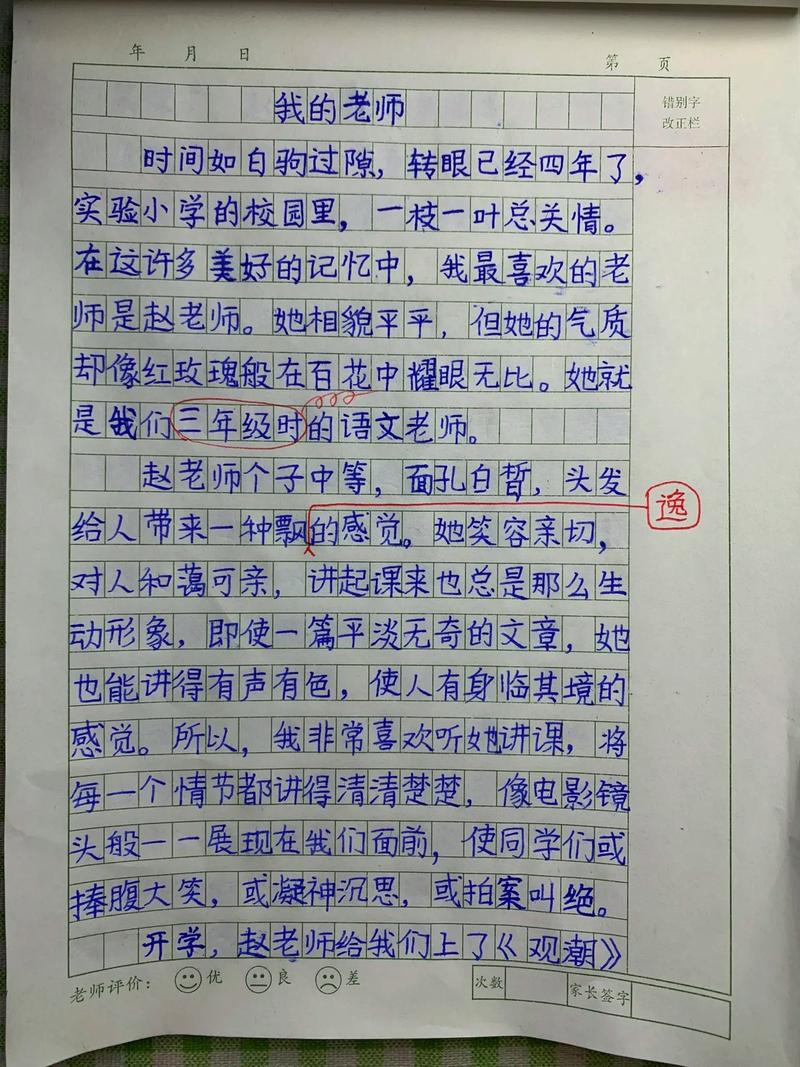 年 月 日 第 页
错别字
改正栏
我的老师
时间如白驹过隙，转眼已经四年了，
实验小学的校园里，一枝一叶总关情。
在这许多美好的记忆中，我最喜欢的老
师是赵老师。她相貌平平，但她的气质
却像红玫瑰般在百花中耀眼无比。她就
是我们三年级时的语文老师。
赵老师个子中等，面孔白皙，头发
逸
给人带来一种飘的感觉。她笑容亲切，
对人和蔼可亲，讲起课来也总是那么生
动形象，即使一篇平淡无奇的文章，她
也能讲得有声有色，使人有身临其境的
感觉。所以，我非常喜欢听她讲课，将
每一个情节都讲得清清楚楚，像电影镜
头般一一展现在我们面前，使同学们或
捧腹大笑，或凝神沉思，或拍案叫绝。
开学，赵老师给我们上了《观潮》
老师评价： 优 良 差 次数 家长签字